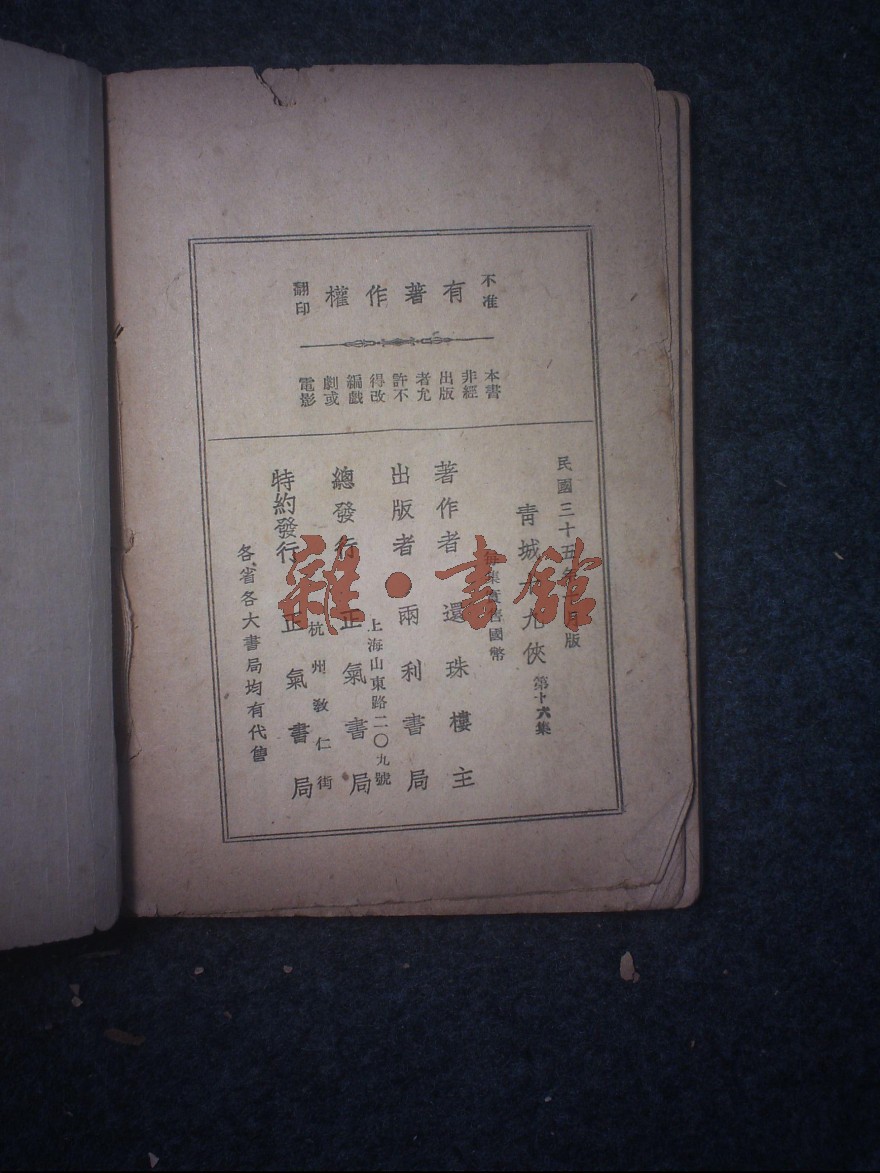 不准
有著作權
翻印
本書非經出版者允許不得改編戲劇或電影
民國三十五年 月版
青城十九俠 第十六集
每集實售國幣
著作者 還珠樓主
出版者 兩利書局
上海山東路二〇九號
總發行 正氣書局
杭州教仁街
特約發行 正氣書局
各省各大書局均有代售
雜·書館